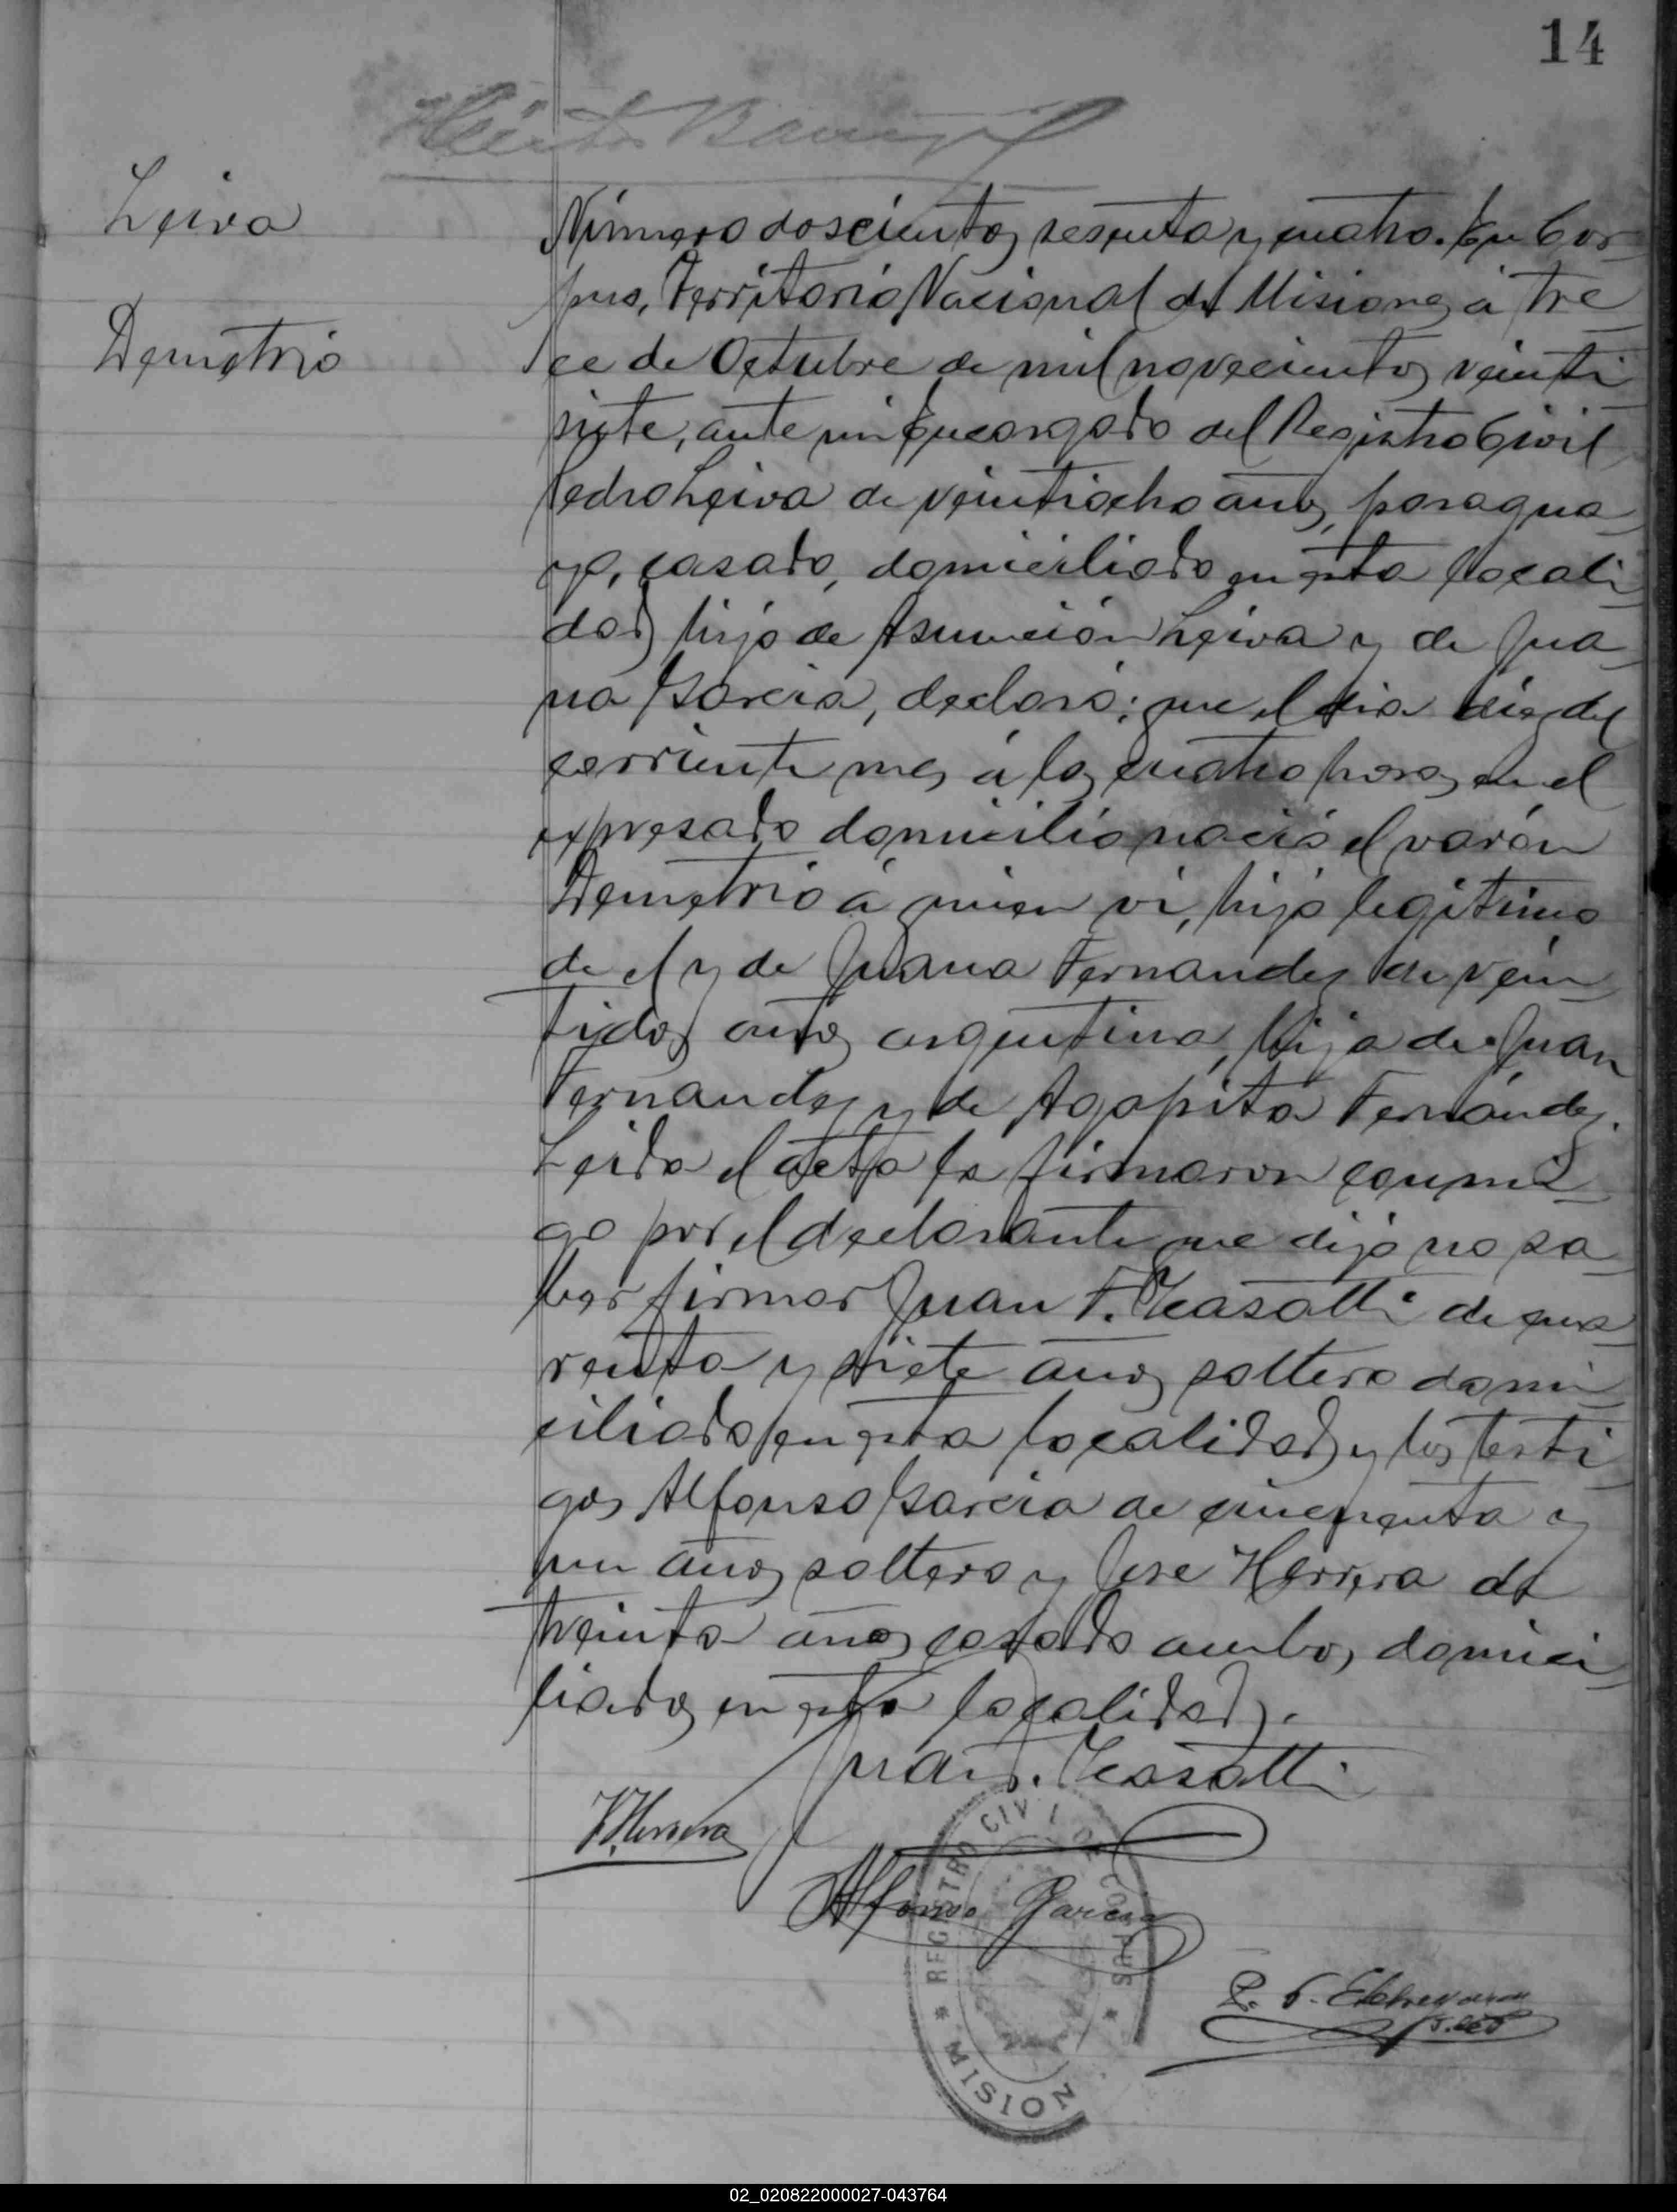 14
Leiva
Demetrio
Número doscientos sesenta y cuatro. En Cor
pus, Territorio Nacional de Misiones á tre
ce de Octubre de mil novecientos veinti
siete, ante mi Encargado del Registro Civil
Pedro Leiva de veintiocho años, paragua
yo, casado, domiciliado en esta locali
dad, hijo de Asunción Leiva y de Jua
na Garcia, declaró: que el dia diez del
corriente mes á las cuatro horas en el
expresado domicilio nació el varón
Demetrio á quien vi, hijo legitimo
de el y de Juana Fernandez de vein
tidos años argentina, hija de Juan
Fernandez y de Agapita Fernández.
Leida el acta la firmaron conmi
go por el declarante que dijo no sa
ber firmar Juan F. Casatti de cua
renta y siete años soltero domi
ciliado en esta localidad y los testi
gos Alfonso Garcia de cincuenta y
un años soltero y José Herrera de
treinta años casado ambos domici
liados en esta localidad.
Juan F. Casatti
J. Herrera
Alfonso Garcia
REGISTRO CIVIL DE CORPUS
MISION
Etchegaray
02_020822000027-043764